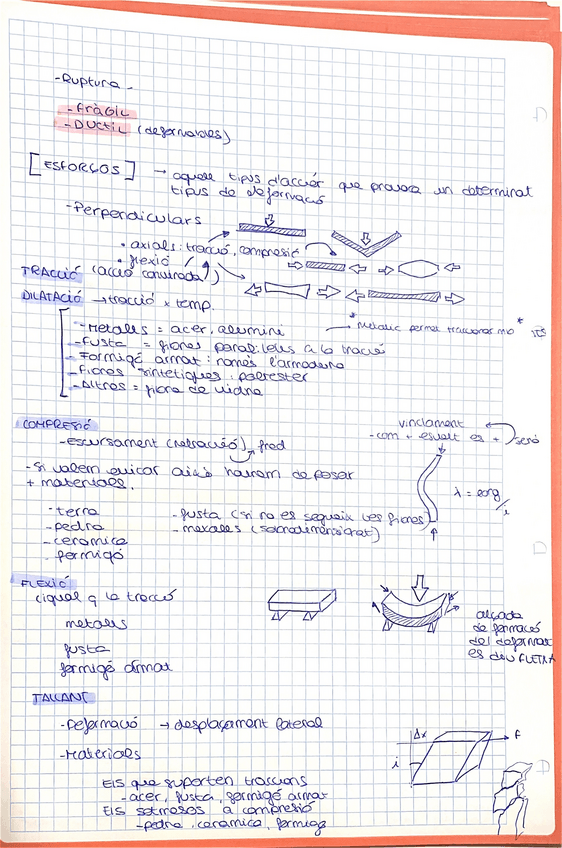 -Ruptura_
- FRÀGIL
- DÚCTIL (deformables)
[ESFORÇOS] → aquell tipus d'acció que provoca un determinat
tipus de deformació
-Perpendiculars
• axials: tracció, compresió
• flexió
TRACCIÓ (acció convinada)
DILATACIÓ → tracció x temp.
-Metalls = acer, alumini
→ Metalic permet traccionar
-Fusta = fibres paral·leles a la tracció
-Formigó armat: només l'armadura
-Fibres sintètiques: poliester
-Altres = fibra de vidre
COMPRESIÓ
-escursament (retracció) fred
vinclament
-com + esvelt es + serà
-Si volem evitar això haurem de posar
+ materials.
-terra
-pedra
-ceramica
-formigó
-fusta (si no es segueix les fibres)
-metalls (sobredimensionat)
λ =
FLEXIÓ
(igual q la tracció
metalls
fusta
formigó armat
alçada
de formació
del deformat
es diu FLETXA
TALLANT
-Deformació → desplaçament lateral
-Materials
Els que suporten traccions
-acer, fusta, formigó armat
Els sotmesos a compresió
-pedra, ceramica, formigó
Δx
F
i